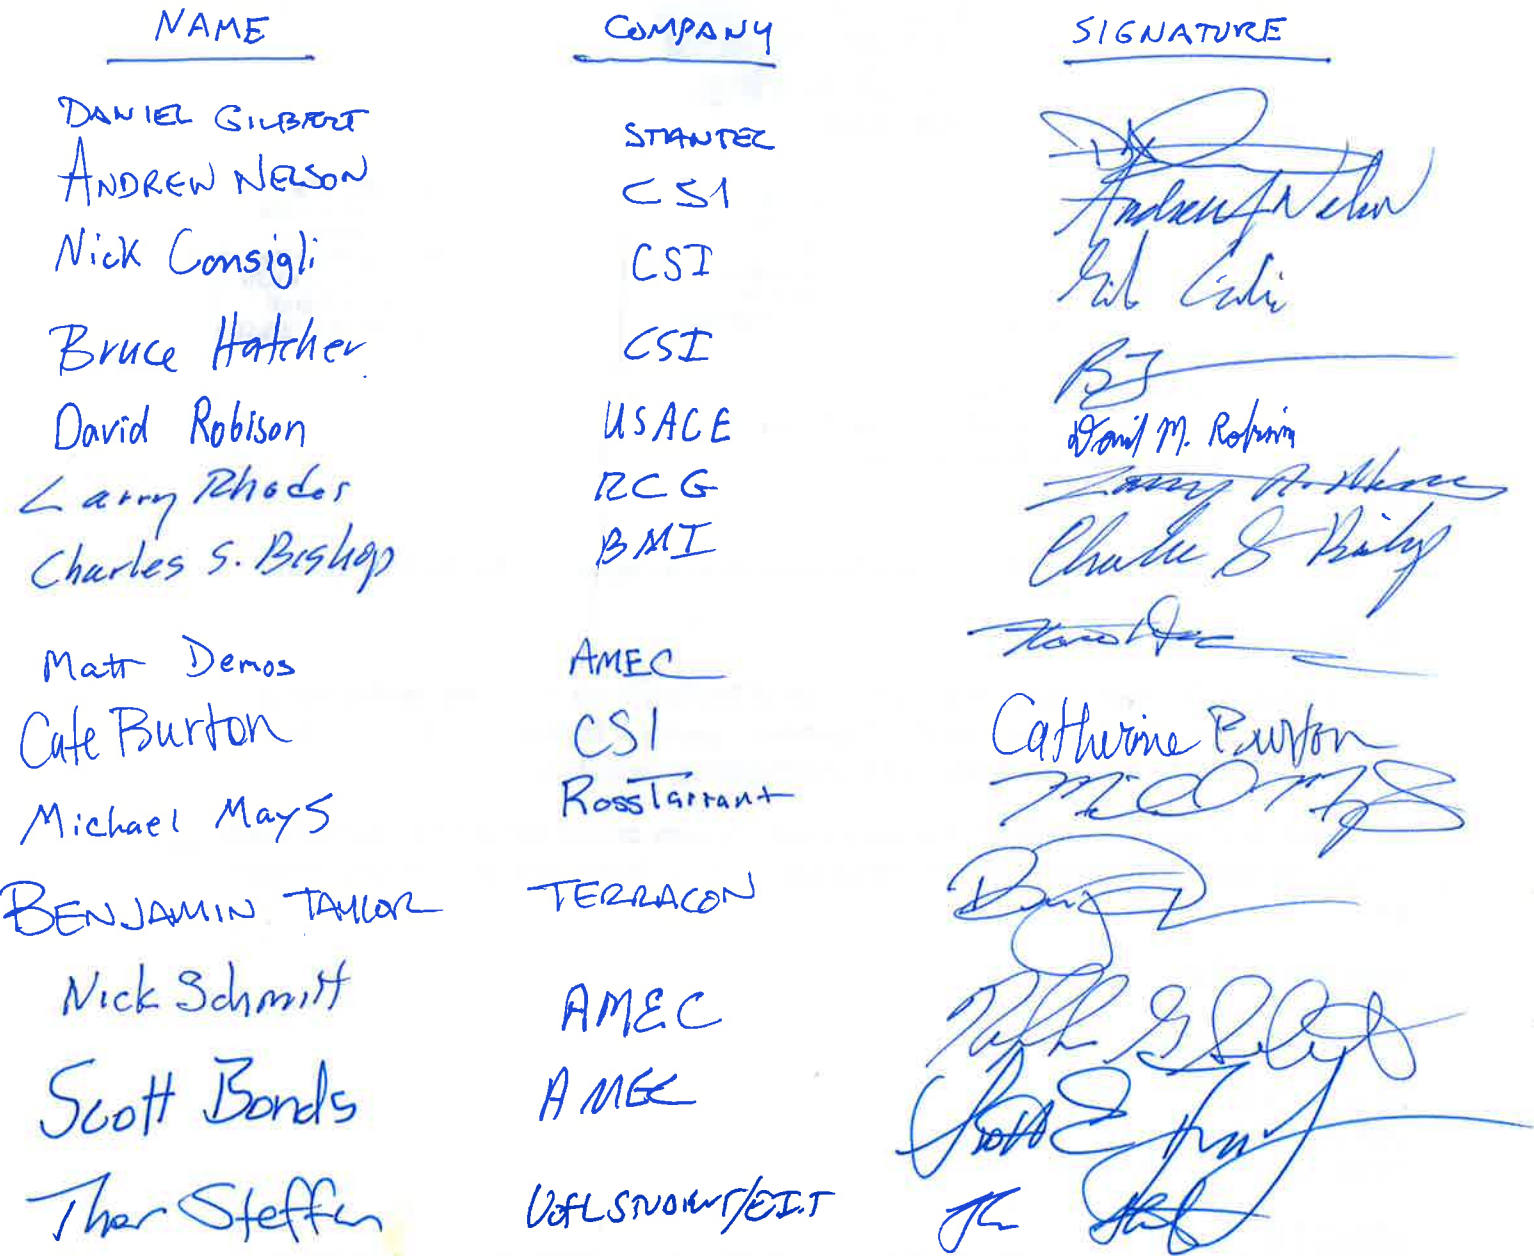 NAME COMPANY SIGNATURE
DANIEL GILBERT STANTEC
ANDREW NELSON CSI Andrew J Nelson
Nick Consigli CSI
Bruce Hatcher CSI
David Robison USACE David M. Robison
Larry Rhodes RCG Larry A. Rhodes
Charles S. Bishop BMI Charles S Bishop
Matt Demos AMEC
Cate Burton CSI Catherine Burton
Michael Mays Ross Tarrant
BENJAMIN TAYLOR TERRACON
Nick Schmitt AMEC
Scott Bonds AMEC Scott E
Thor Steffen UofL STUDENT/E.I.T